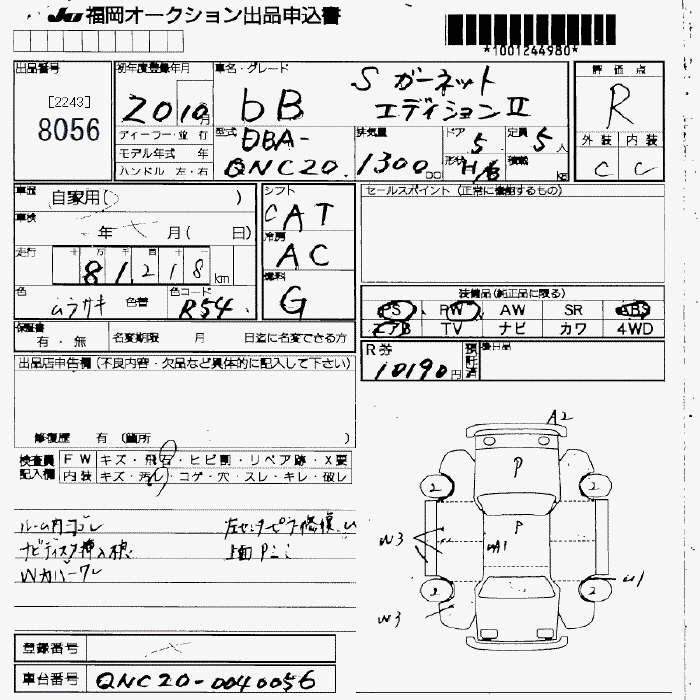 JU 福岡オークション出品申込書
*1001244980*
出品番号
[2243]
8056
初年度登録年月
20 10 月
ディーラー・並行
モデル年式 年
ハンドル 左・右
車名・グレード
bB S ガーネット
エディションⅡ
型式
DBA-
QNC20.
排気量
1300 cc
ドア 5
定員 5 人
形状 H/B
積載 kg
評価点
R
外装 内装
C C
車歴
自家用( )
車検
年 月( 日)
走行
十 万 千 百 十
81218 km
色
ムラサキ
色替
色コード
R54.
シフト
CAT
冷房
AC
燃料
G
セールスポイント(正常に機能するもの)
装備品(純正品に限る)
PS PW AW SR ABS
エアB TV ナビ カワ 4WD
保証書
有・無
名変期限 月 日迄に名変できる方
R券
10190円
預託済
後日品
出品店申告欄(不良内容・欠品など具体的に記入して下さい)
修復歴 有(箇所 )
検査員記入欄
FW キズ・飛石・ヒビ割・リペア跡・X要
内装 キズ・汚レ・コゲ・穴・スレ・キレ・破レ
ルーム内ヨゴレ
左センターピラー修復
ナビディスク挿入
上面P
Wカバーワレ
A2
P
2 2
P
W3
UA1
U1
2 2
W3
登録番号
車台番号 QNC20-0040056